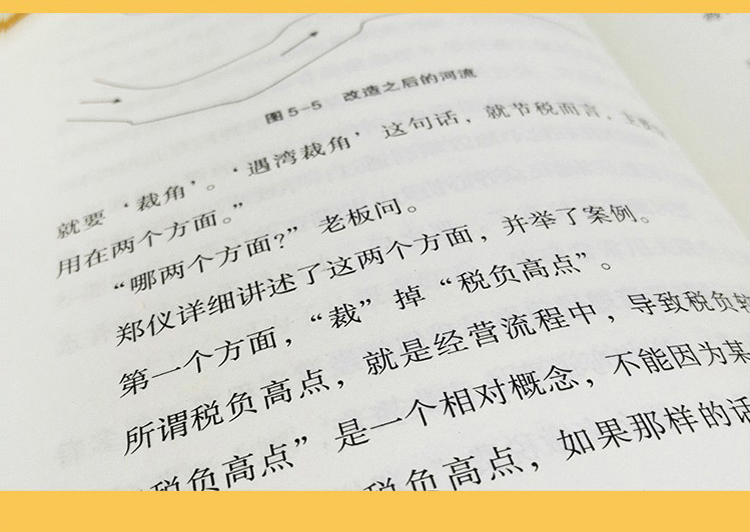 图 5-5 改造之后的河流
就要‘裁角’。‘遇湾裁角’这句话，就节税而言，主要
用在两个方面。”
“哪两个方面?”老板问。
郑仪详细讲述了这两个方面，并举了案例。
第一个方面，“裁”掉“税负高点”。
所谓税负高点，就是经营流程中，导致税负较
税负高点”是一个相对概念，不能因为某
税负高点，如果那样的话